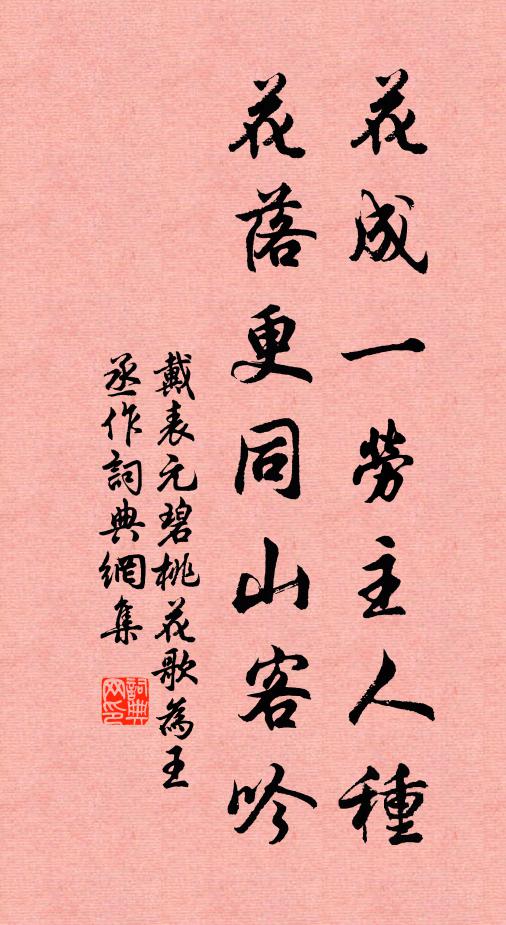 花成一勞主人種
花落更同山客吟
戴表元碧桃花歌為王
丞作詞典網集
詞典
网印